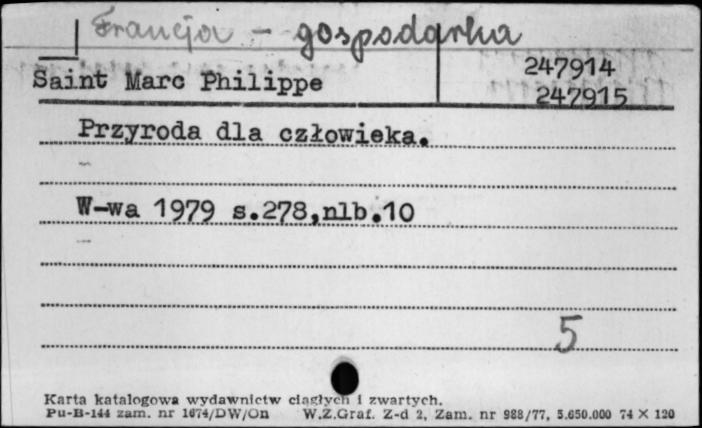 Francja - gospodarka
247914
Saint Marc Philippe
247915
Przyroda dla człowieka.
W-wa 1979 s.278,nlb.10
5
Karta katalogowa wydawnictw ciągłych i zwartych.
Pu-B-144 zam. nr 1674/DW/On W.Z.Graf. Z-d 2, Zam. nr 988/77, 5.650.000 74 X 120